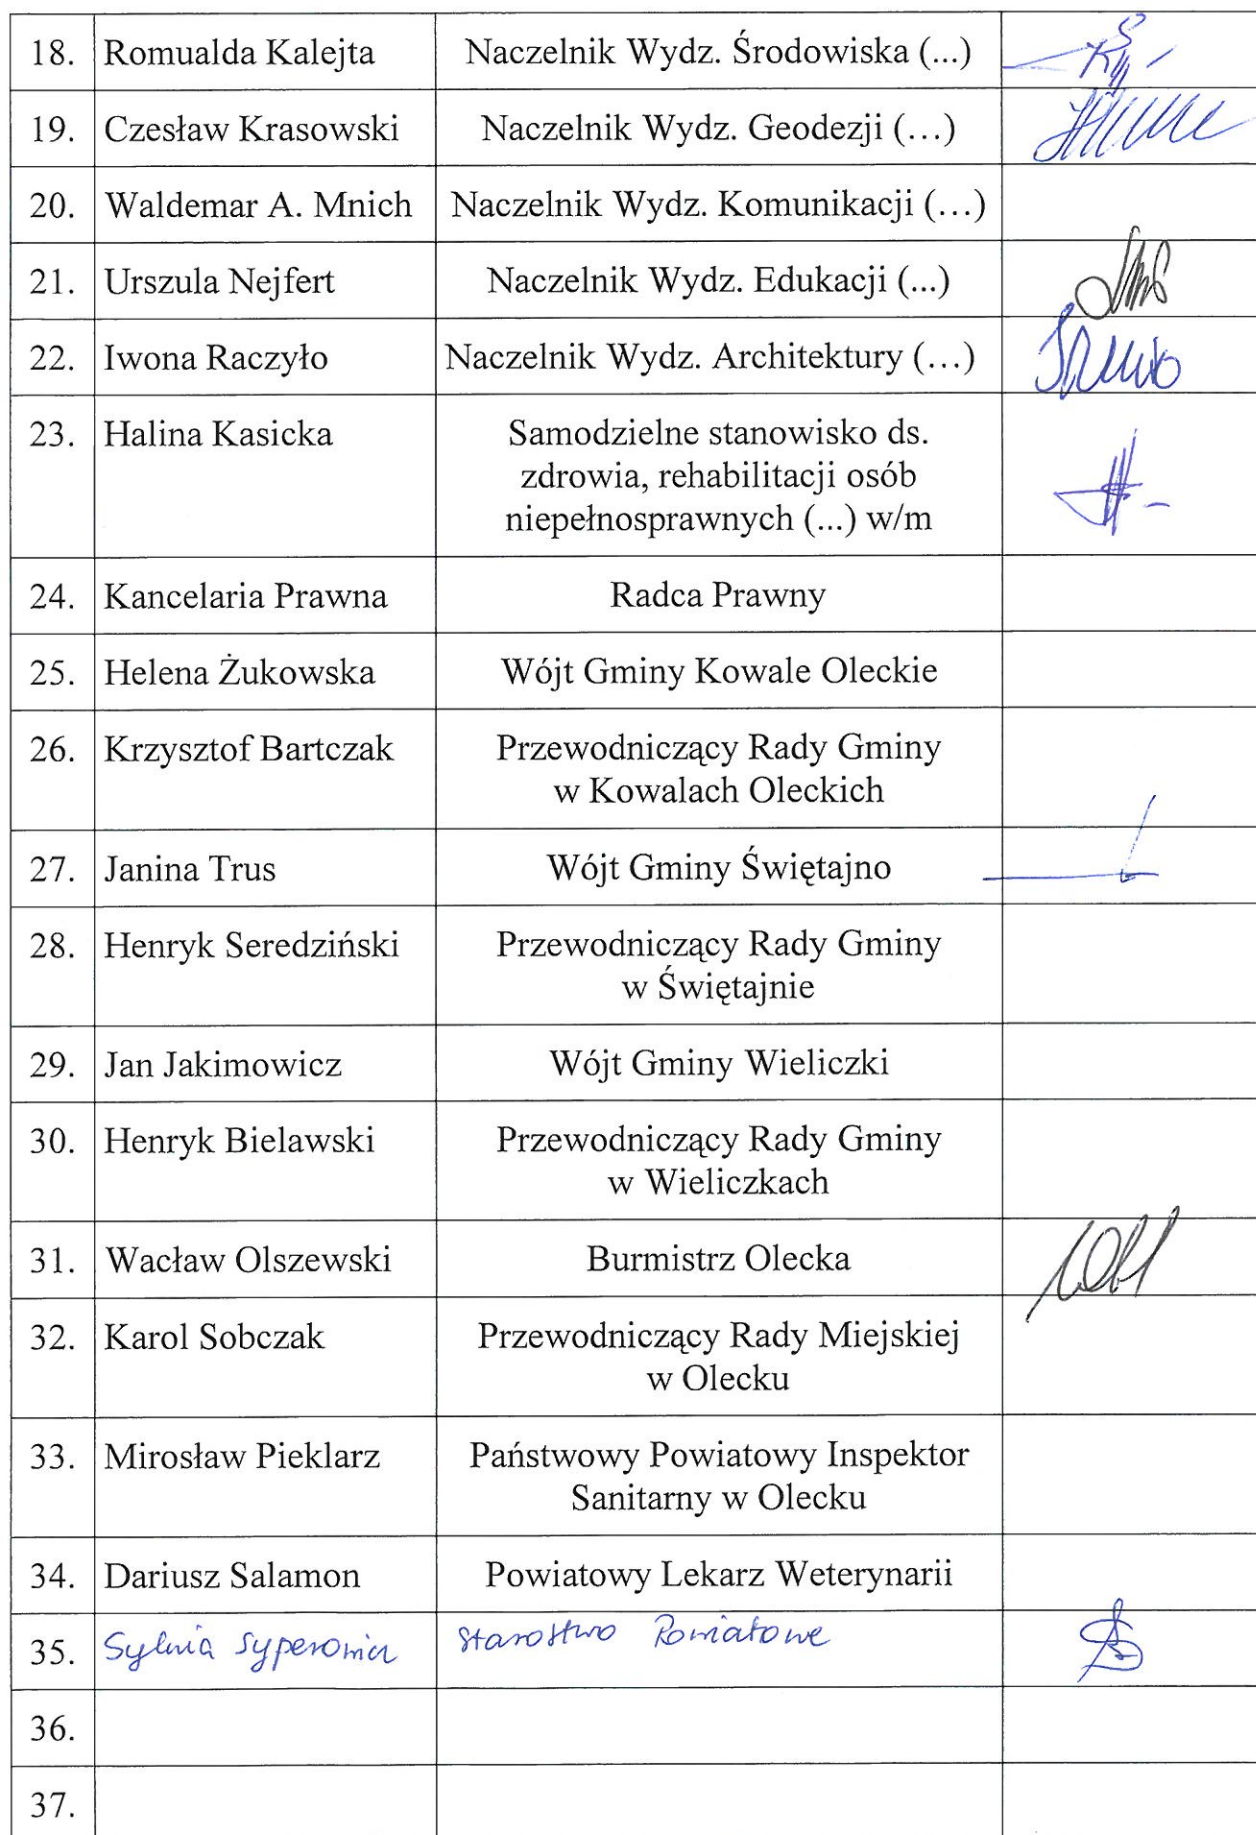 18. Romualda Kalejta Naczelnik Wydz. Środowiska (...)
19. Czesław Krasowski Naczelnik Wydz. Geodezji (...)
20. Waldemar A. Mnich Naczelnik Wydz. Komunikacji (...)
21. Urszula Nejfert Naczelnik Wydz. Edukacji (...)
22. Iwona Raczyło Naczelnik Wydz. Architektury (...)
23. Halina Kasicka Samodzielne stanowisko ds.
zdrowia, rehabilitacji osób
niepełnosprawnych (...) w/m
24. Kancelaria Prawna Radca Prawny
25. Helena Żukowska Wójt Gminy Kowale Oleckie
26. Krzysztof Bartczak Przewodniczący Rady Gminy
w Kowalach Oleckich
27. Janina Trus Wójt Gminy Świętajno
28. Henryk Seredziński Przewodniczący Rady Gminy
w Świętajnie
29. Jan Jakimowicz Wójt Gminy Wieliczki
30. Henryk Bielawski Przewodniczący Rady Gminy
w Wieliczkach
31. Wacław Olszewski Burmistrz Olecka
32. Karol Sobczak Przewodniczący Rady Miejskiej
w Olecku
33. Mirosław Pieklarz Państwowy Powiatowy Inspektor
Sanitarny w Olecku
34. Dariusz Salamon Powiatowy Lekarz Weterynarii
35. Sylwia Starostwo Powiatowe
36.
37.